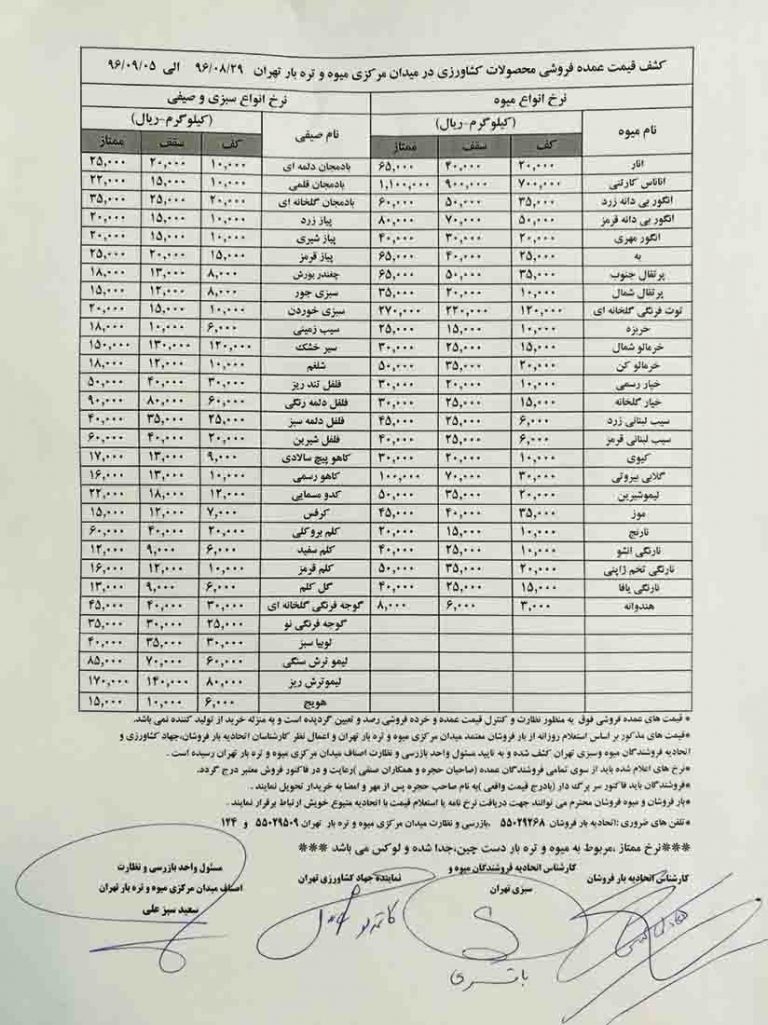 کشف قیمت عمده فروشی محصولات کشاورزی در میدان مرکزی میوه و تره بار تهران ۹۶/۰۸/۲۹ الی ۹۶/۰۹/۰۵
نرخ انواع میوه نرخ انواع سبزی و صیفی
نام میوه (کیلوگرم-ریال) نام صیفی (کیلوگرم-ریال)
کف سقف ممتاز کف سقف ممتاز
انار ۲۰,۰۰۰ ۴۰,۰۰۰ ۶۵,۰۰۰ بادمجان دلمه ای ۱۰,۰۰۰ ۲۰,۰۰۰ ۲۵,۰۰۰
اناناس کارتنی ۷۰۰,۰۰۰ ۹۰۰,۰۰۰ ۱,۱۰۰,۰۰۰ بادمجان قلمی ۱۰,۰۰۰ ۱۵,۰۰۰ ۲۲,۰۰۰
انگور بی دانه زرد ۳۵,۰۰۰ ۵۰,۰۰۰ ۶۰,۰۰۰ بادمجان گلخانه ای ۲۰,۰۰۰ ۲۵,۰۰۰ ۳۵,۰۰۰
انگور بی دانه قرمز ۵۰,۰۰۰ ۷۰,۰۰۰ ۸۰,۰۰۰ پیاز زرد ۱۰,۰۰۰ ۱۵,۰۰۰ ۲۰,۰۰۰
انگور مهری ۲۰,۰۰۰ ۳۰,۰۰۰ ۴۰,۰۰۰ پیاز شیری ۱۰,۰۰۰ ۱۵,۰۰۰ ۲۰,۰۰۰
به ۲۵,۰۰۰ ۴۰,۰۰۰ ۶۵,۰۰۰ پیاز قرمز ۱۵,۰۰۰ ۲۰,۰۰۰ ۲۵,۰۰۰
پرتقال جنوب ۳۵,۰۰۰ ۵۰,۰۰۰ ۶۵,۰۰۰ چغندر بورش ۸,۰۰۰ ۱۳,۰۰۰ ۱۸,۰۰۰
پرتقال شمال ۱۰,۰۰۰ ۲۰,۰۰۰ ۳۵,۰۰۰ سبزی جور ۸,۰۰۰ ۱۲,۰۰۰ ۱۵,۰۰۰
توت فرنگی گلخانه ای ۱۲۰,۰۰۰ ۲۲۰,۰۰۰ ۲۷۰,۰۰۰ سبزی خوردن ۱۰,۰۰۰ ۱۵,۰۰۰ ۲۰,۰۰۰
خربزه ۱۰,۰۰۰ ۱۵,۰۰۰ ۲۵,۰۰۰ سیب زمینی ۶,۰۰۰ ۱۰,۰۰۰ ۱۸,۰۰۰
خرمالو شمال ۱۵,۰۰۰ ۲۵,۰۰۰ ۳۰,۰۰۰ سیر خشک ۱۲۰,۰۰۰ ۱۳۰,۰۰۰ ۱۵۰,۰۰۰
خرمالو کن ۲۰,۰۰۰ ۳۵,۰۰۰ ۵۰,۰۰۰ شلغم ۱۰,۰۰۰ ۱۲,۰۰۰ ۱۸,۰۰۰
خیار رسمی ۱۰,۰۰۰ ۲۰,۰۰۰ ۳۰,۰۰۰ فلفل تند ریز ۳۰,۰۰۰ ۴۰,۰۰۰ ۵۰,۰۰۰
خیار گلخانه ۱۵,۰۰۰ ۲۵,۰۰۰ ۳۰,۰۰۰ فلفل دلمه رنگی ۶۰,۰۰۰ ۸۰,۰۰۰ ۹۰,۰۰۰
سیب لبنانی زرد ۶,۰۰۰ ۲۵,۰۰۰ ۴۵,۰۰۰ فلفل دلمه سبز ۲۵,۰۰۰ ۳۵,۰۰۰ ۴۰,۰۰۰
سیب لبنانی قرمز ۶,۰۰۰ ۲۵,۰۰۰ ۴۰,۰۰۰ فلفل شیرین ۲۰,۰۰۰ ۴۰,۰۰۰ ۶۰,۰۰۰
کیوی ۱۰,۰۰۰ ۲۰,۰۰۰ ۳۰,۰۰۰ کاهو پیچ سالادی ۹,۰۰۰ ۱۳,۰۰۰ ۱۷,۰۰۰
گلابی بیروتی ۳۰,۰۰۰ ۷۰,۰۰۰ ۱۰۰,۰۰۰ کاهو رسمی ۱۰,۰۰۰ ۱۳,۰۰۰ ۱۶,۰۰۰
لیموشیرین ۲۰,۰۰۰ ۳۵,۰۰۰ ۵۰,۰۰۰ کدو مسمایی ۱۲,۰۰۰ ۱۸,۰۰۰ ۲۲,۰۰۰
موز ۳۵,۰۰۰ ۴۰,۰۰۰ ۴۵,۰۰۰ کرفس ۷,۰۰۰ ۱۲,۰۰۰ ۱۵,۰۰۰
نارنج ۱۰,۰۰۰ ۱۵,۰۰۰ ۲۰,۰۰۰ کلم بروکلی ۲۰,۰۰۰ ۴۰,۰۰۰ ۶۰,۰۰۰
نارنگی انشو ۱۰,۰۰۰ ۲۵,۰۰۰ ۴۰,۰۰۰ کلم سفید ۶,۰۰۰ ۹,۰۰۰ ۱۲,۰۰۰
نارنگی تخم ژاپنی ۲۰,۰۰۰ ۳۵,۰۰۰ ۵۰,۰۰۰ کلم قرمز ۱۰,۰۰۰ ۱۲,۰۰۰ ۱۶,۰۰۰
نارنگی یافا ۱۵,۰۰۰ ۲۵,۰۰۰ ۴۰,۰۰۰ گل کلم ۶,۰۰۰ ۹,۰۰۰ ۱۳,۰۰۰
هندوانه ۳,۰۰۰ ۶,۰۰۰ ۸,۰۰۰ گوجه فرنگی گلخانه ای ۳۰,۰۰۰ ۴۰,۰۰۰ ۴۵,۰۰۰
گوجه فرنگی نو ۲۵,۰۰۰ ۳۰,۰۰۰ ۳۵,۰۰۰
لوبیا سبز ۳۰,۰۰۰ ۳۵,۰۰۰ ۴۰,۰۰۰
لیمو ترش سنگی ۶۰,۰۰۰ ۷۰,۰۰۰ ۸۵,۰۰۰
لیموترش ریز ۸۰,۰۰۰ ۱۴۰,۰۰۰ ۱۷۰,۰۰۰
هویج ۶,۰۰۰ ۱۰,۰۰۰ ۱۵,۰۰۰
* قیمت های عمده فروشی فوق به منظور نظارت و کنترل قیمت عمده و خرده فروشی رصد و تعیین گردیده است و به منزله خرید از تولید کننده نمی باشد.
* قیمت های مذکور بر اساس استعلام روزانه از بار فروشان معتمد میدان مرکزی میوه و تره بار تهران و اعمال نظر کارشناسان اتحادیه بار فروشان،جهاد کشاورزی و
اتحادیه فروشندگان میوه وسبزی تهران کشف شده و به تایید مسئول واحد بازرسی و نظارت اصناف میدان مرکزی میوه و تره بار تهران رسیده است .
*نرخ های اعلام شده باید از سوی تمامی فروشندگان عمده (صاحبان حجره و همکاران صنفی )رعایت و در فاکتور فروش معتبر درج گردد.
*فروشندگان باید فاکتور سر برگ دار (بادرج قیمت واقعی )به نام صاحب حجره پس از مهر و امضا به خریدار تحویل نمایند .
*بار فروشان و میوه فروشان محترم می توانند جهت دریافت نرخ نامه یا استعلام قیمت با اتحادیه متبوع خویش ارتباط برقرار نمایند .
*تلفن های ضروری :اتحادیه بار فروشان ۵۵۰۲۹۲۶۸ ،بازرسی و نظارت میدان مرکزی میوه و تره بار تهران ۵۵۰۲۹۵۰۹ و ۱۲۴
***نرخ ممتاز ،مربوط به میوه و تره بار دست چین،جدا شده و لوکس می باشد ***
کارشناس اتحادیه بار فروشان
کارشناس اتحادیه فروشندگان میوه و
سبزی تهران
نماینده جهاد کشاورزی تهران
مسئول واحد بازرسی و نظارت
اصناف میدان مرکزی میوه و تره بار تهران
سعید سبز علی
باقری